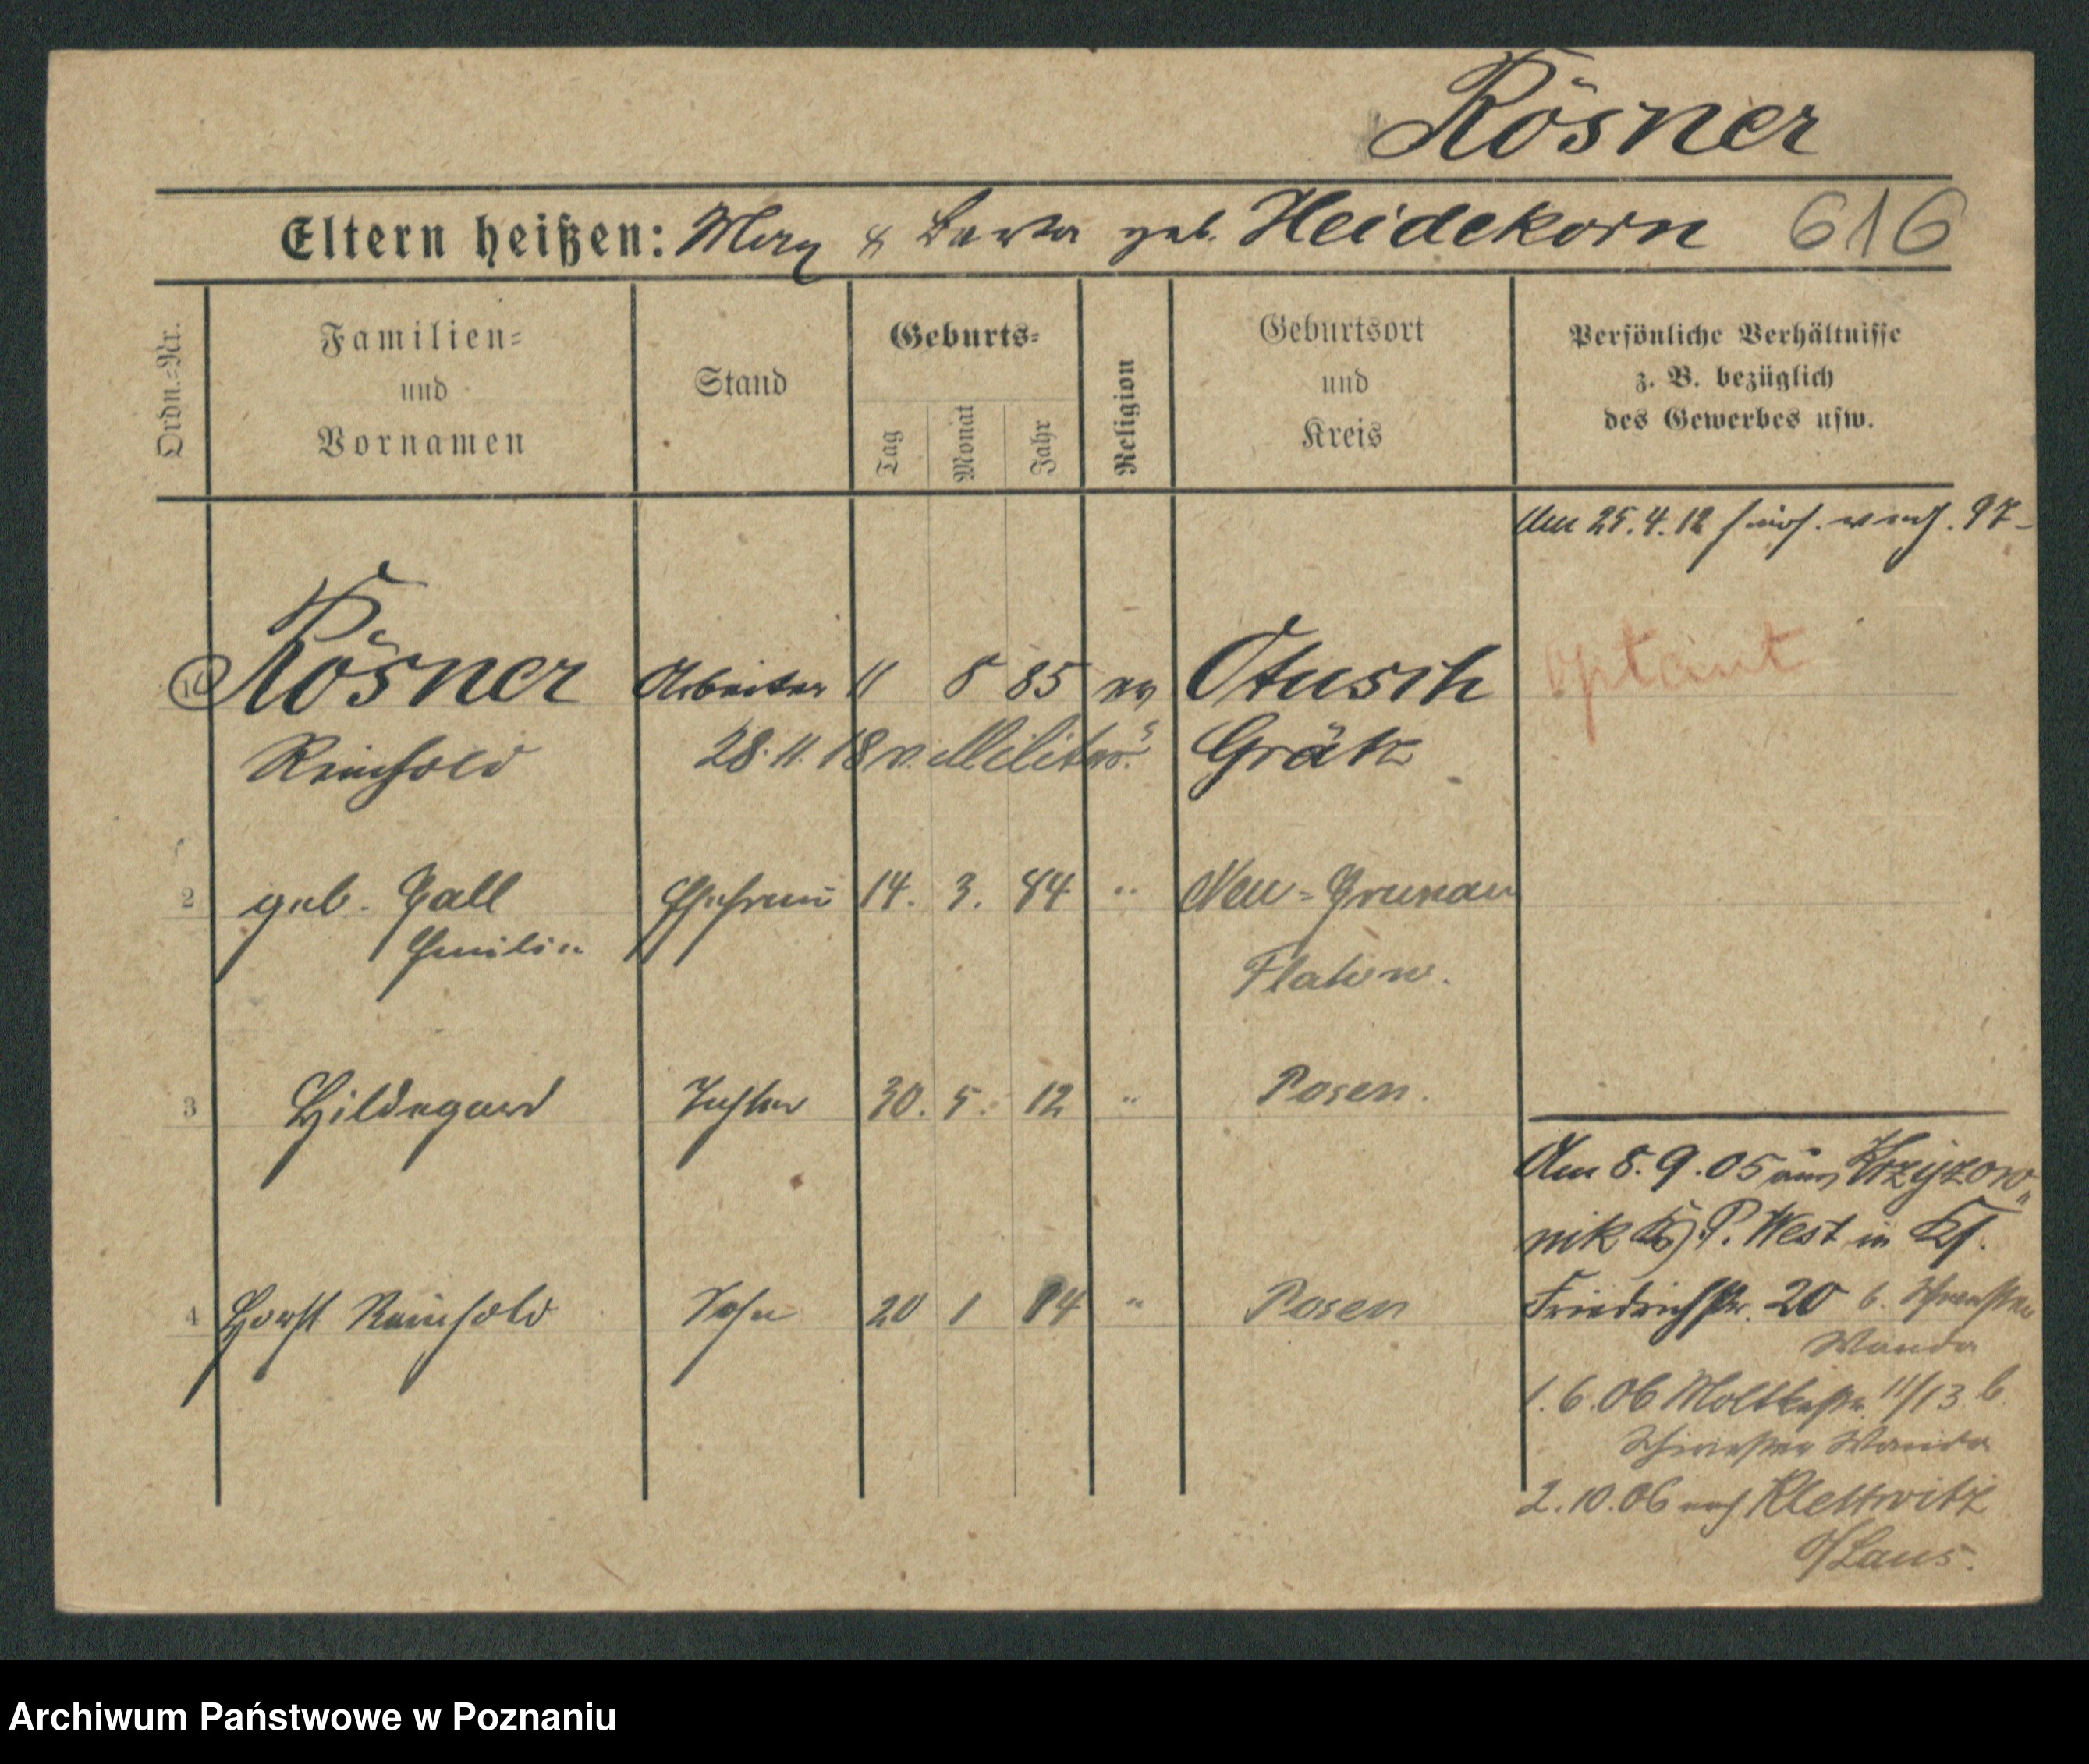 Rösner
Eltern heißen: Max & Berta geb. Heidekorn 616
Ordn.=Nr.
Familien=
und
Vornamen
Stand
Geburts=
Tag
Monat
Jahr
Religion
Geburtsort
und
Kreis
Persönliche Verhältnisse
z. B. bezüglich
des Gewerbes usw.
Am 25.4.12 97
1 Rösner Arbeiter 11 8 85 ev Otusch optant
Reinhold 28.11.18 v. Militär. Grätz
2 geb. Gall Ehefrau 14. 3. 84 " Neu=Grunau
Emilie Flatow.
3 Hildegard Tochter 30. 5. 12 " Posen.
4 Horst Reinhold Sohn 20 1 14 " Posen
Am 8.9.05 aus Krzyzow„
nik P. West in
Friedrichstr. 20 b. Schwester
Wanda
1.6.06 Moltkestr. 11/13 b.
Schwester Wanda
2.10.06 nach Klettwitz
O/Laus.
Archiwum Państwowe w Poznaniu